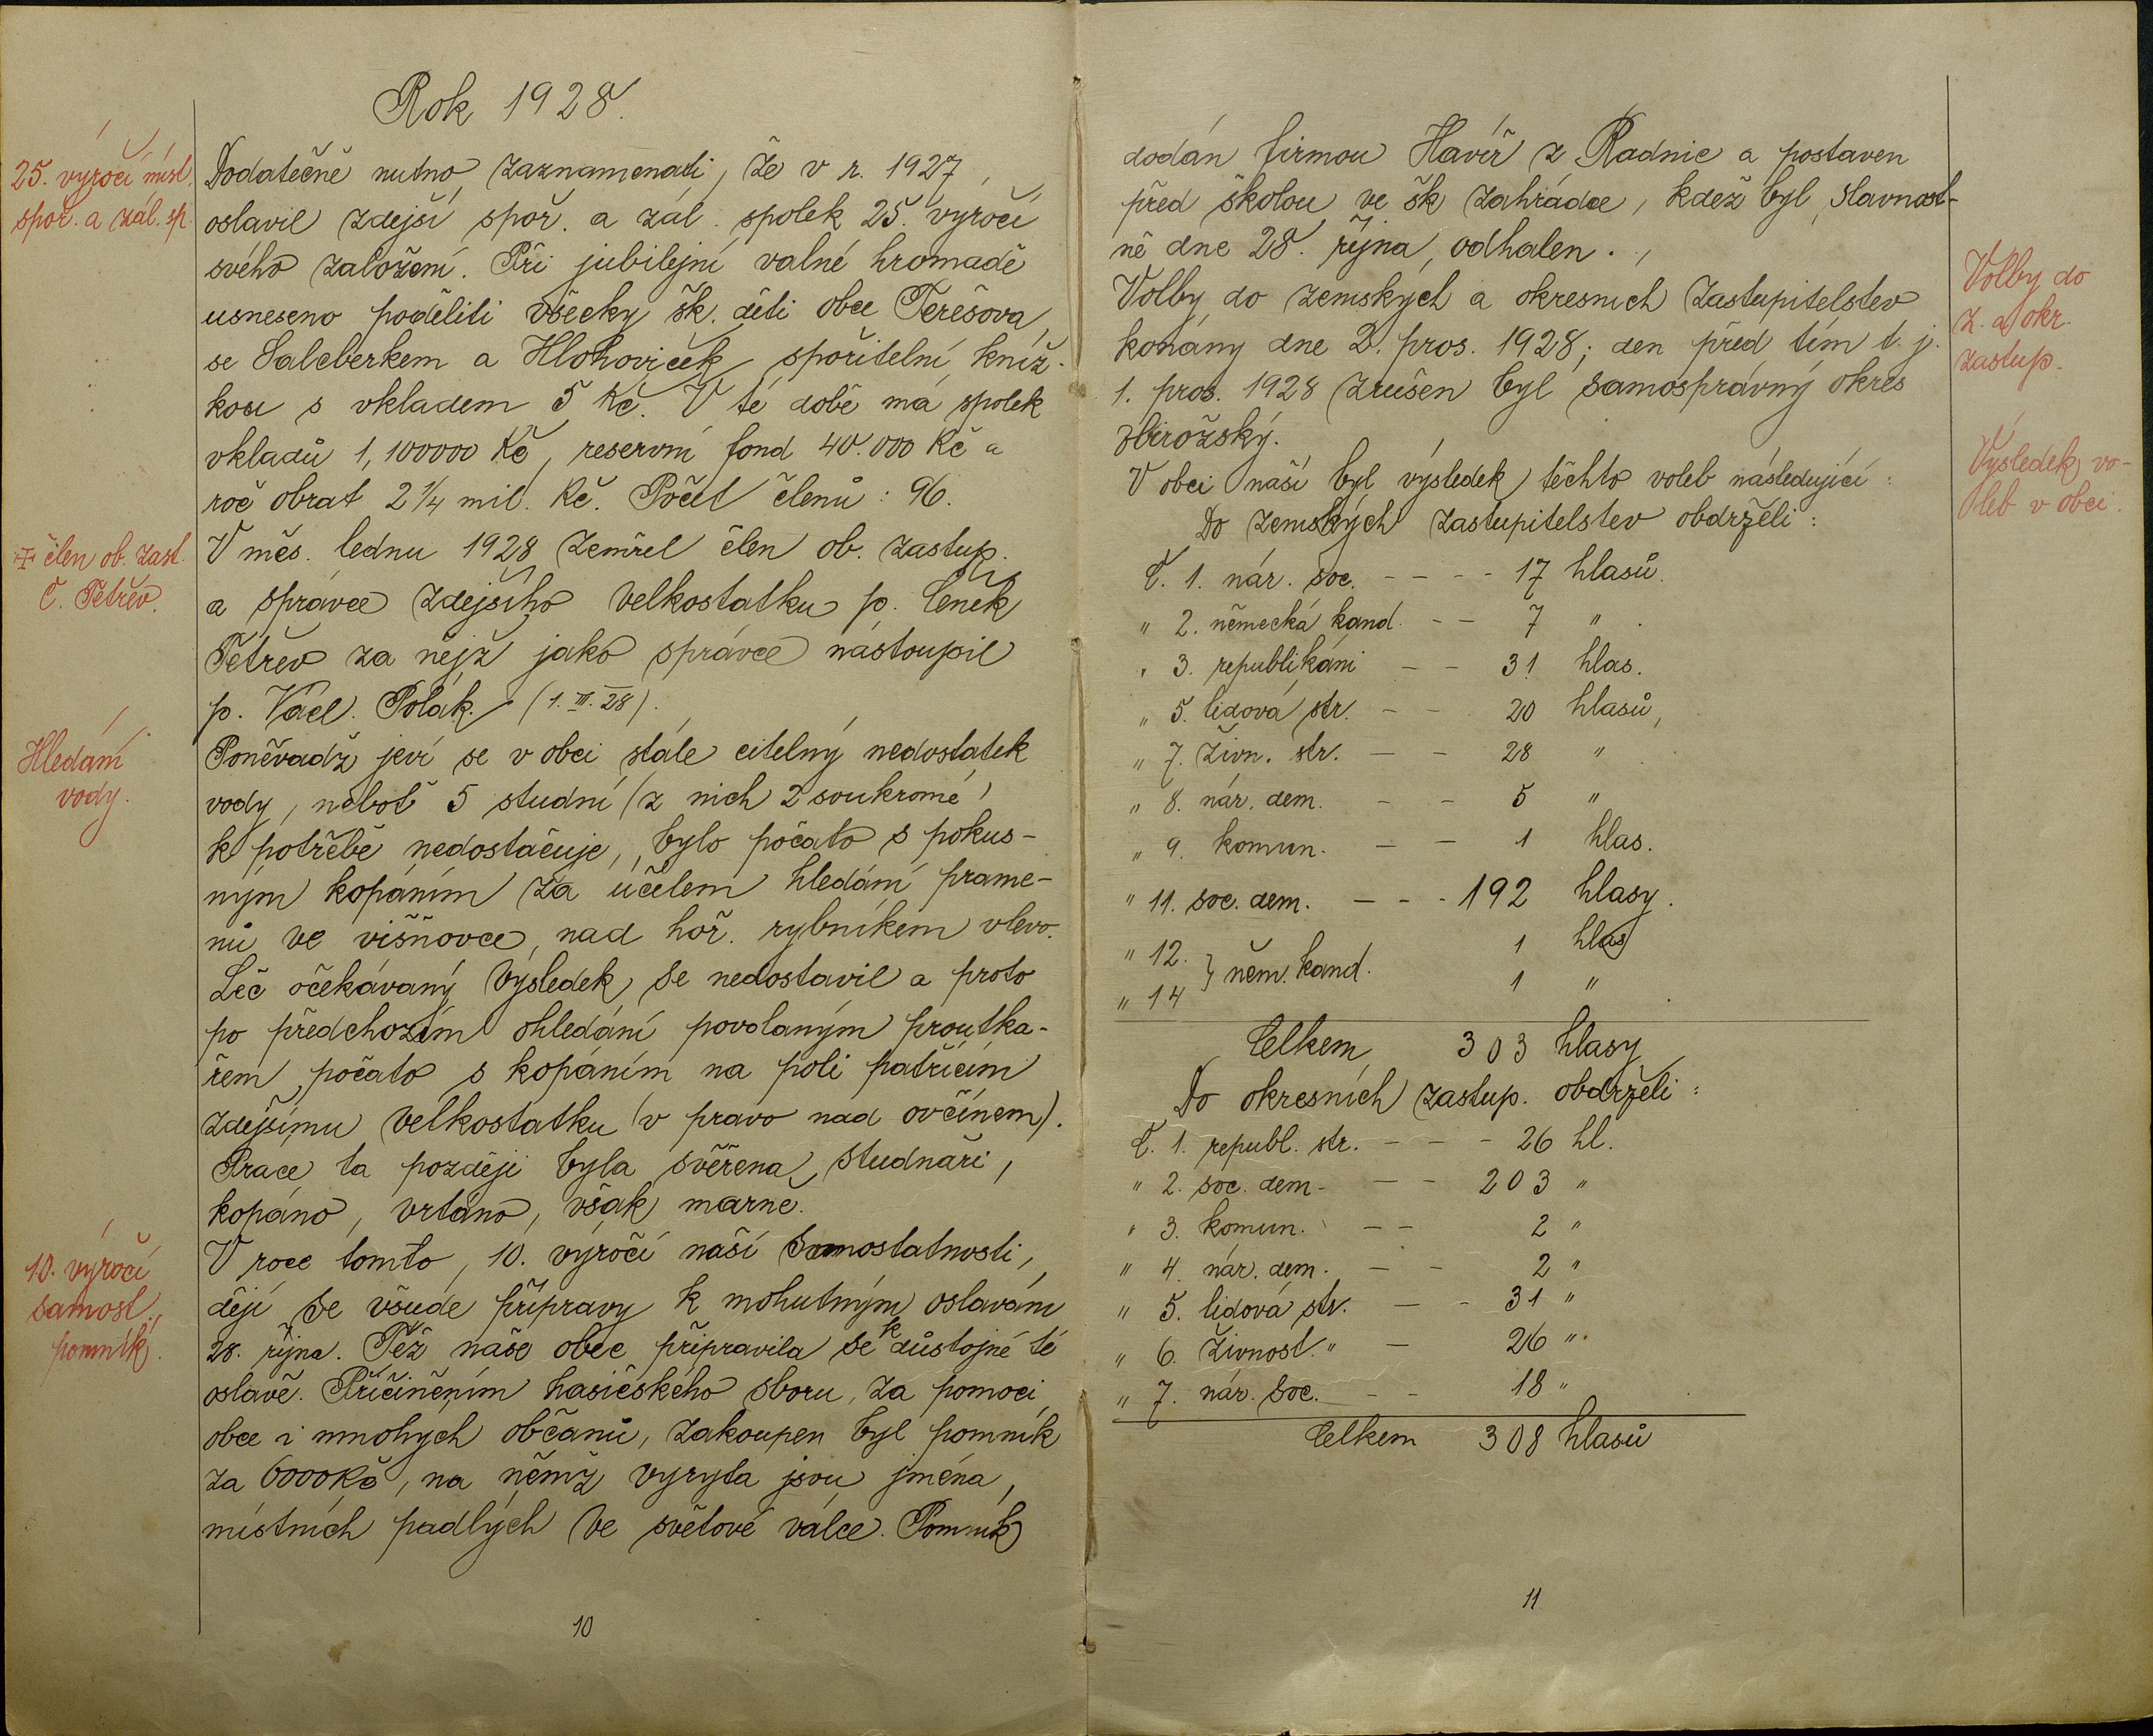 Rok 1928.
25. výročí míst.
spoř. a zál. sp.
Dodatečně nutno zaznamenati, že v r. 1927
oslavil zdejší spoř. a zál. spolek 25. výročí
svého založení. Při jubilejní valné hromadě
usneseno poděliti všecky šk. děti obce Terešova
se Salcberkem a Hlohoviček spořitelní kníž-
kou s vkladem 5 Kč. V té době má spolek
vkladů 1,100000 Kč, reservní fond 40.000 Kč a
roč obrat 2 1/4 mil. Kč. Počet členů: 96.
+ člen ob. zast.
Č. Tetřev.
V měs. lednu 1928 zemřel člen ob. zastup.
a správce zdejšího velkostatku p. Čeněk
Tetřev za nějž jako správce nastoupil
p. Václ. Polák. (1. III. 28).
Hledání
vody.
Poněvadž jeví se v obci stále citelný nedostatek
vody, neboť 5 studní (z nich 2 soukromé)
k potřebě nedostačuje, bylo počato s pokus-
ným kopáním za účelem hledání prame-
nů ve višňovce, nad hoř. rybníkem vlevo.
Leč očekávaný výsledek se nedostavil a proto
po předchozím ohledání povolaným proutka-
řem, počato s kopáním na poli patřícím
zdejšímu velkostatku (v pravo nad ovčínem).
Práce ta později byla svěřena studnaři,
kopáno, vrtáno, však marně.
10. výročí
samost.,
pomník.
V roce tomto, 10. výročí naší samostatnosti,
dějí se všude přípravy k mohutným oslavám
28. října. Též naše obec připravila se k důstojné té
oslavě. Přičiněním hasičského sboru, za pomoci
obce i mnohých občanů, zakoupen byl pomník
za 6000 Kč, na němž vyryta jsou jména
místních padlých ve světové válce. Pomník
10
dodán firmou Havíř z Radnic a postaven
před školou ve šk zahrádce, kdež byl slavnost-
ně dne 28. října odhalen.
Volby do
z. a okr.
zastup.
Volby do zemských a okresních zastupitelstev
konány dne 2. pros. 1928; den před tím t. j.
1. pros. 1928 zrušen byl samosprávný okres
zbirožský.
Výsledek vo-
leb v obci.
V obci naší byl výsledek těchto voleb následující:
Do zemských zastupitelstev obdrželi:
Č. 1. nár. soc. - - - - 17 hlasů.
" 2. německá kand. - - 7 "
" 3. republikáni - - 31 hlas.
" 5. lidová str. - - 20 hlasů,
" 7. živn. str. - - 28 "
" 8. nár. dem. - - 5 "
" 9. komun. - - 1 hlas.
" 11. soc. dem. - - - 192 hlasy.
" 12. } něm. kand. 1 hlas
" 14 1 "
Celkem 303 hlasy
Do okresních zastup. obdrželi:
Č. 1. republ. str. - - - 26 hl.
" 2. soc. dem. - - 203 "
" 3. komun. - - 2 "
" 4. nár. dem. - - 2 "
" 5. lidová str. - - 31 "
" 6. živnost. " - 26 "
" 7. nár. soc. - - 18 "
Celkem 308 hlasů
11